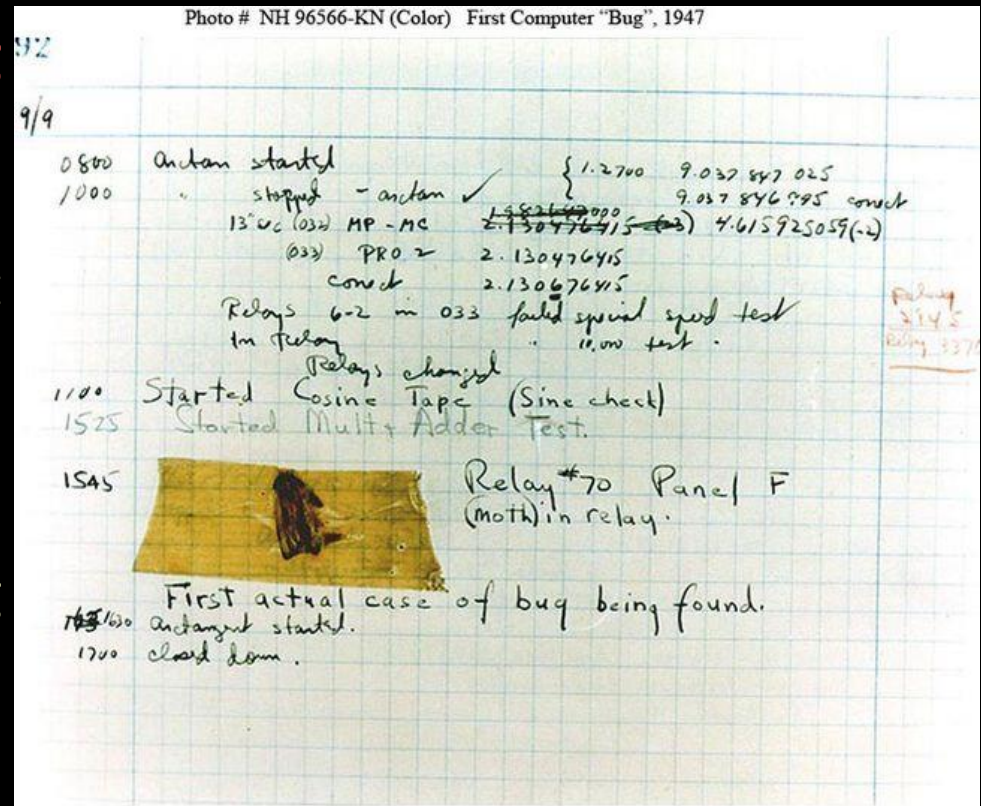 Photo # NH 96566-KN (Color) First Computer “Bug”, 1947
92
9/9
0800 Antan started { 1.2700 9.037 847 025
1000 " stopped - antan ✓ 9.037 846 995 conect
13"uc (032) MP - MC 2.130476415 (-3) 4.615925059(-2)
(033) PRO 2 2.130476415
conect 2.130676415
Relays 6-2 in 033 failed special speed test
In Relay " 10,000 test .
Relays changed
Relay
2145
Relay 3370
1100 Started Cosine Tape (Sine check)
1525 Started Mult+ Adder Test.
1545 Relay #70 Panel F
(moth) in relay.
First actual case of bug being found.
1630 antangent started.
1700 closed down .